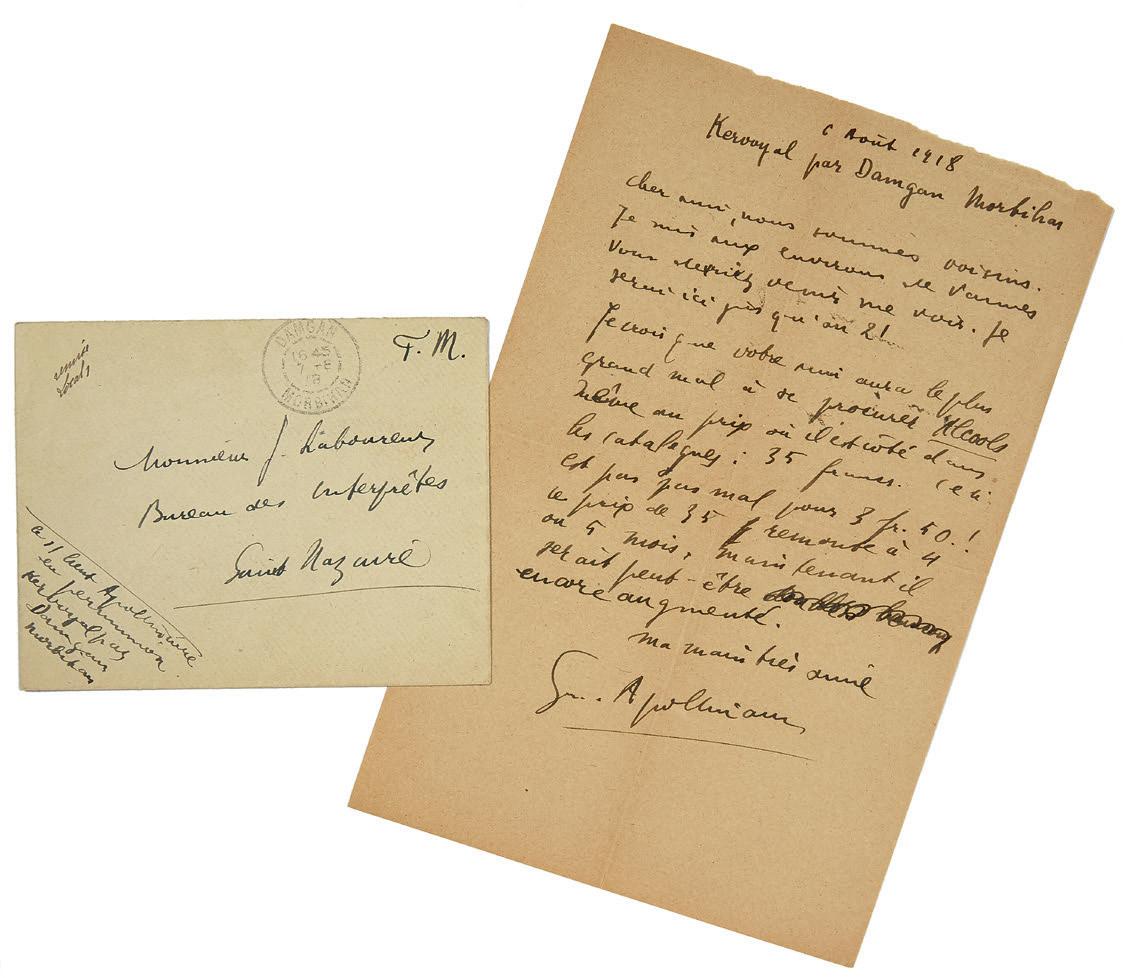 DAMGAN
16 45
7 - 8
18
MORBIHAN
F. M.
Monsieur J. Laboureur
Bureau des Interprêtes
Saint Nazaire
s/lieut Apollinaire
en permission
Kervoyal par
Damgan
Morbihan
6 Août 1918
Kervoyal par Damgan Morbihan
cher ami, nous sommes voisins.
Je suis aux environs de Vannes
Vous devriez venir me voir. Je
serai ici jusqu'au 21.
Je crois que votre ami aura le plus
grand mal à se procurer Alcools
même au prix où il est côté dans
les catalogues : 35 francs. Ce n'
est pas pas mal pour 3 fr. 50 . !
Le prix de 35 f remonte à 4
ou 5 mois, maintenant il
serait peut-être
encore augmenté.
Ma main très amie
Gui. Apollinaire